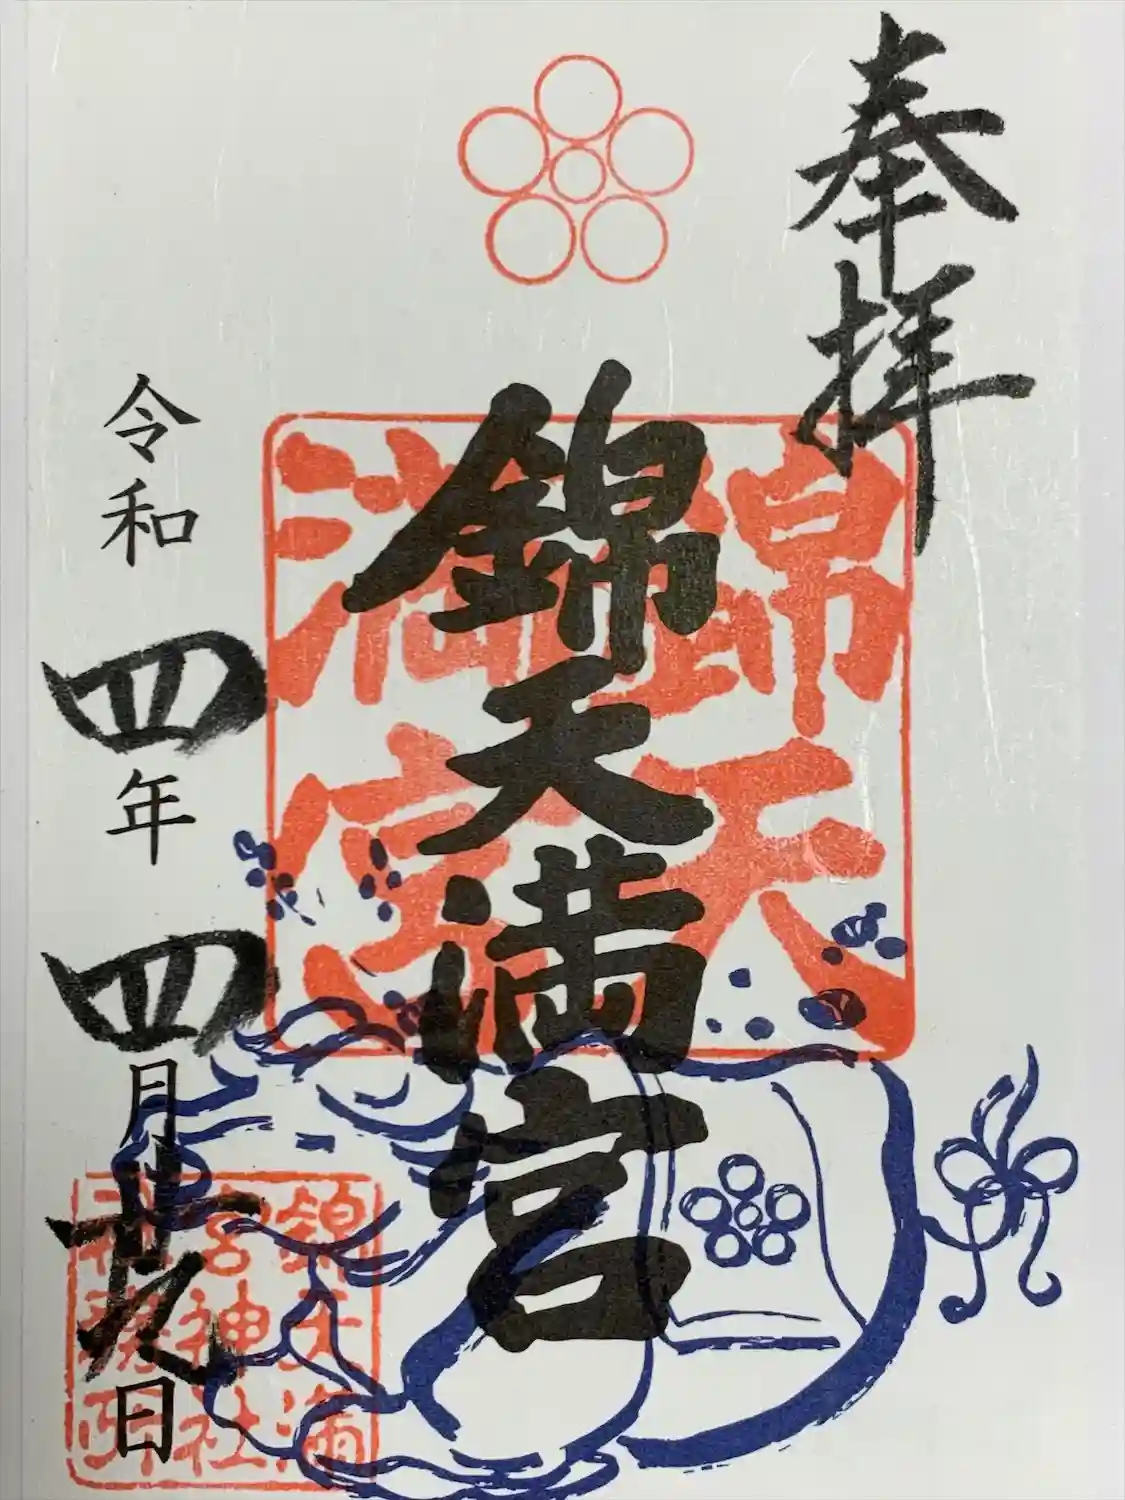 奉拝
錦天満宮
錦天満宮
令和四年四月廿九日
錦天満宮神社